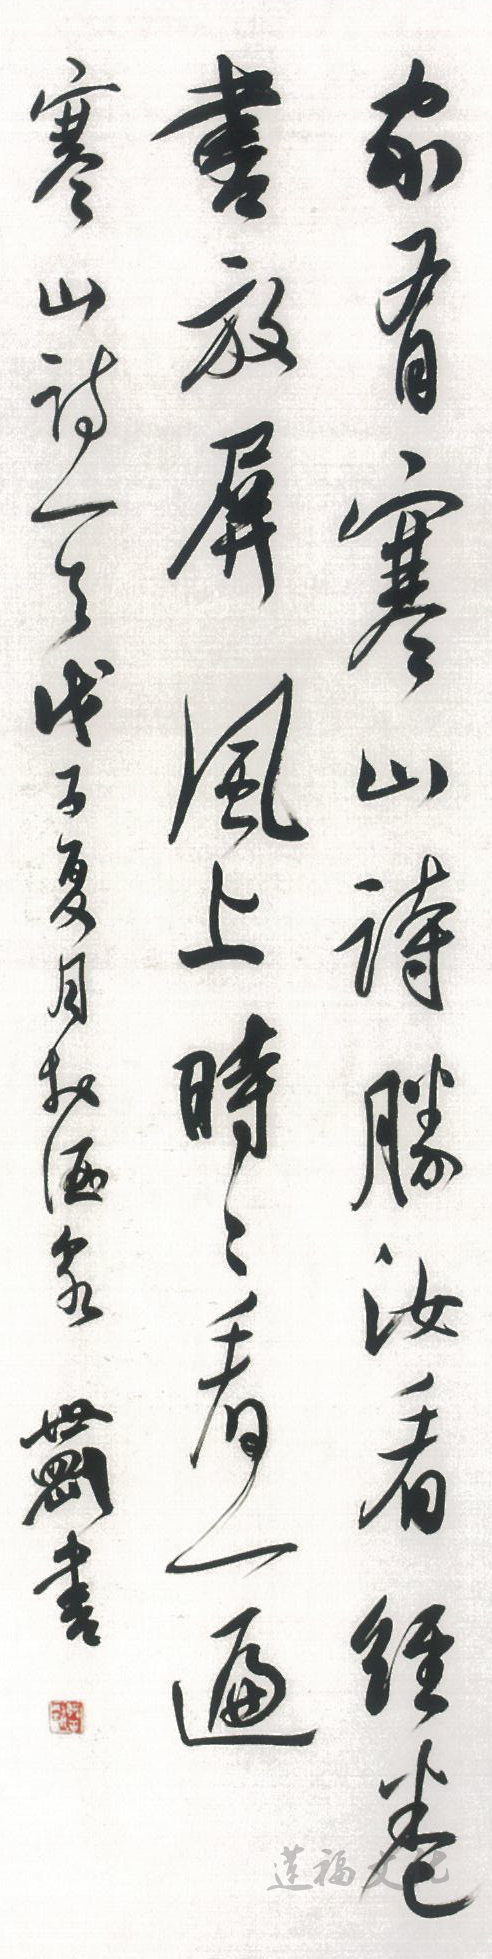 家有寒山詩勝汝看經卷
書放屏風上時々看一遍
寒山詩一首戊子夏月於酒泉 世剛書
蓮福文化